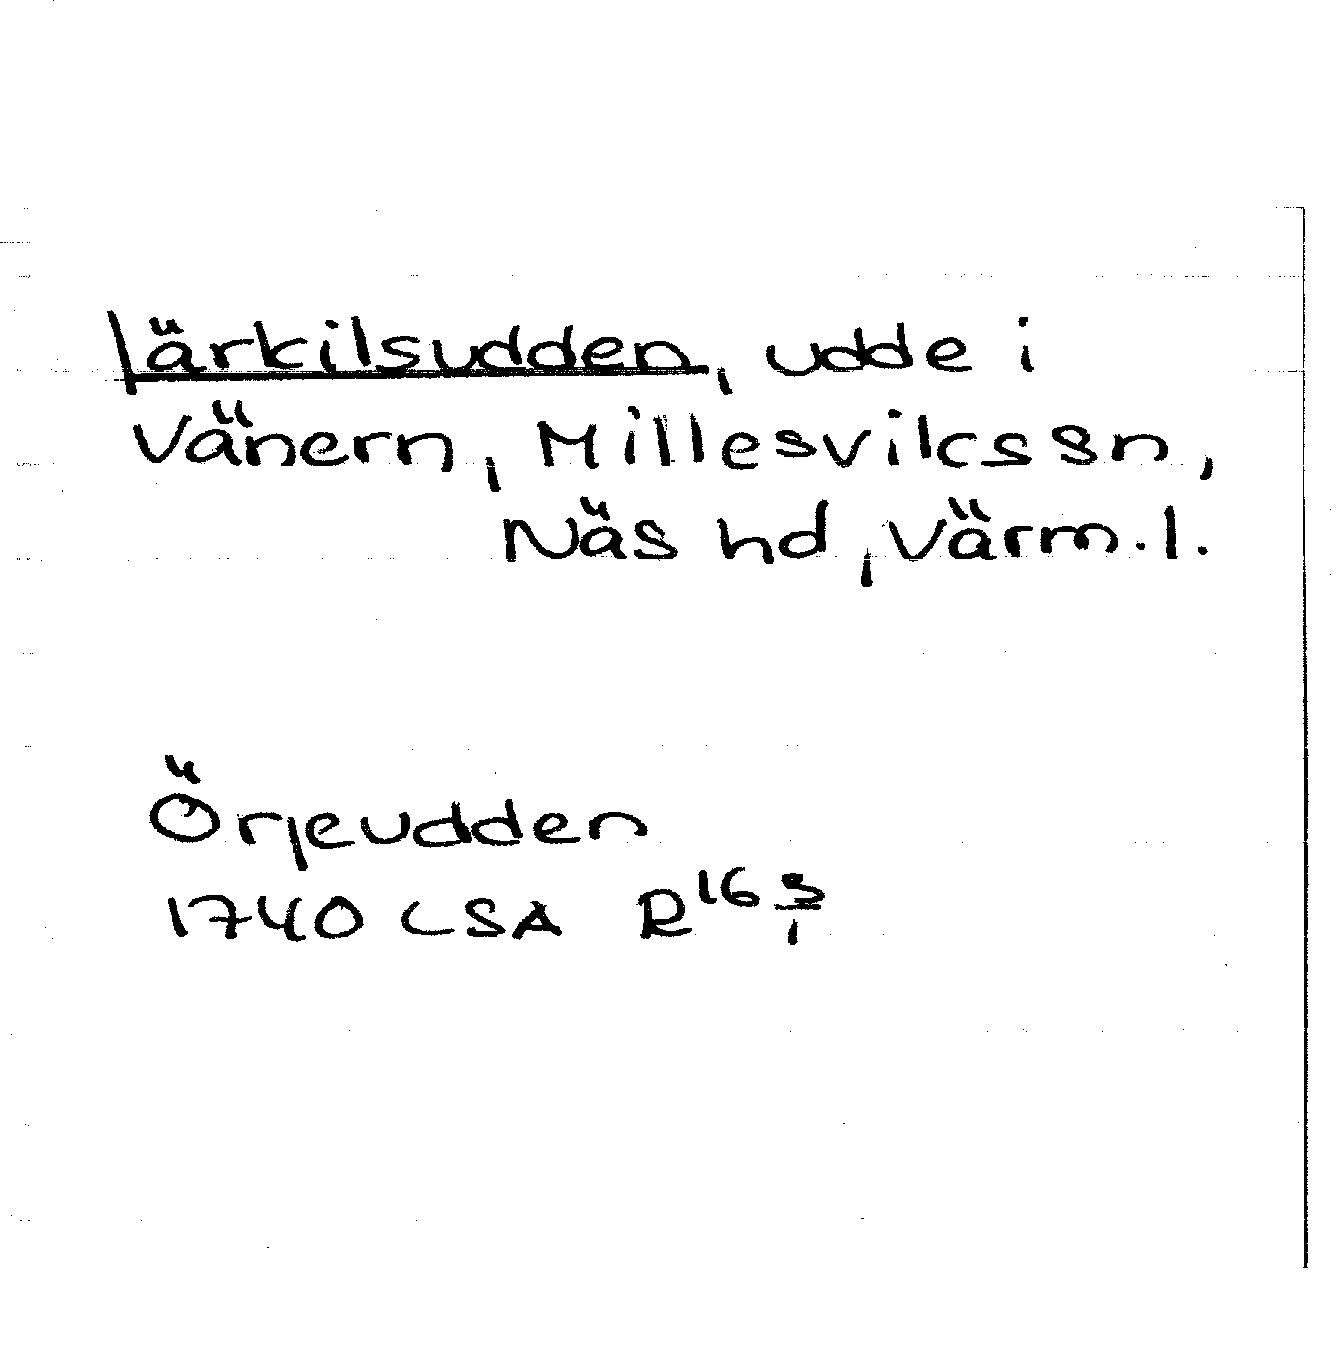 Järkilsudden, udde i
Vänern, Millesviks sn,
Näs hd, Värm.l.
Örjeudden
1740 LSA R16 3/1